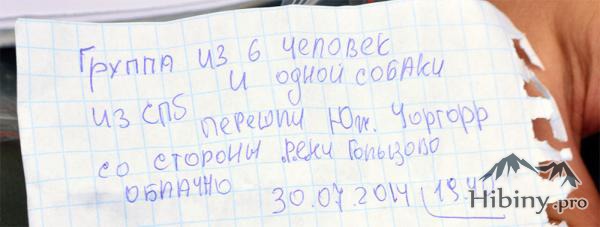 Группа из 6 человек
и одной собаки
из СПб перешли Юж. Чоргорр
со стороны реки Гольцово
облачно 30.07.2014
Hibiny.pro